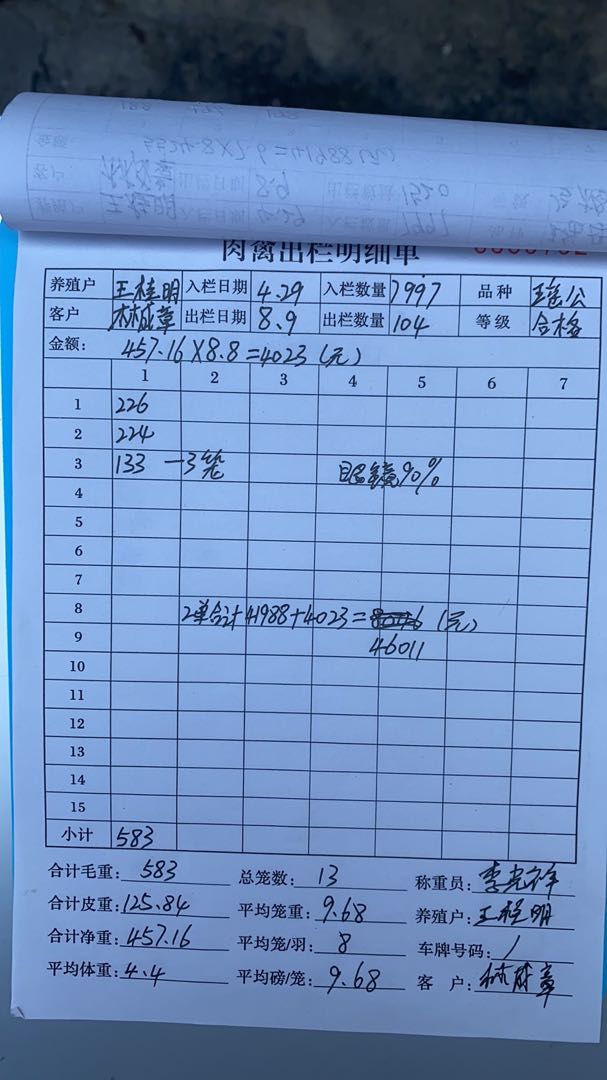 5524.8×7.6=41988(元)
肉禽出栏明细单
养殖户 王桂明 入栏日期 4.29 入栏数量 7997 品种 瑶公
客户 林成章 出栏日期 8.9 出栏数量 104 等级 合格
金额: 457.16×8.8=4023(元)
1 2 3 4 5 6 7
1 226
2 224
3 133 一3笼 眼镜90%
4
5
6
7
8 2单合计41988+4023= (元)
9 46011
10
11
12
13
14
15
小计 583
合计毛重: 583 总笼数: 13 称重员: 李光祥
合计皮重: 125.84 平均笼重: 9.68 养殖户: 王桂明
合计净重: 457.16 平均笼/羽: 8 车牌号码: /
平均体重: 4.4 平均磅/笼: 9.68 客户: 林成章